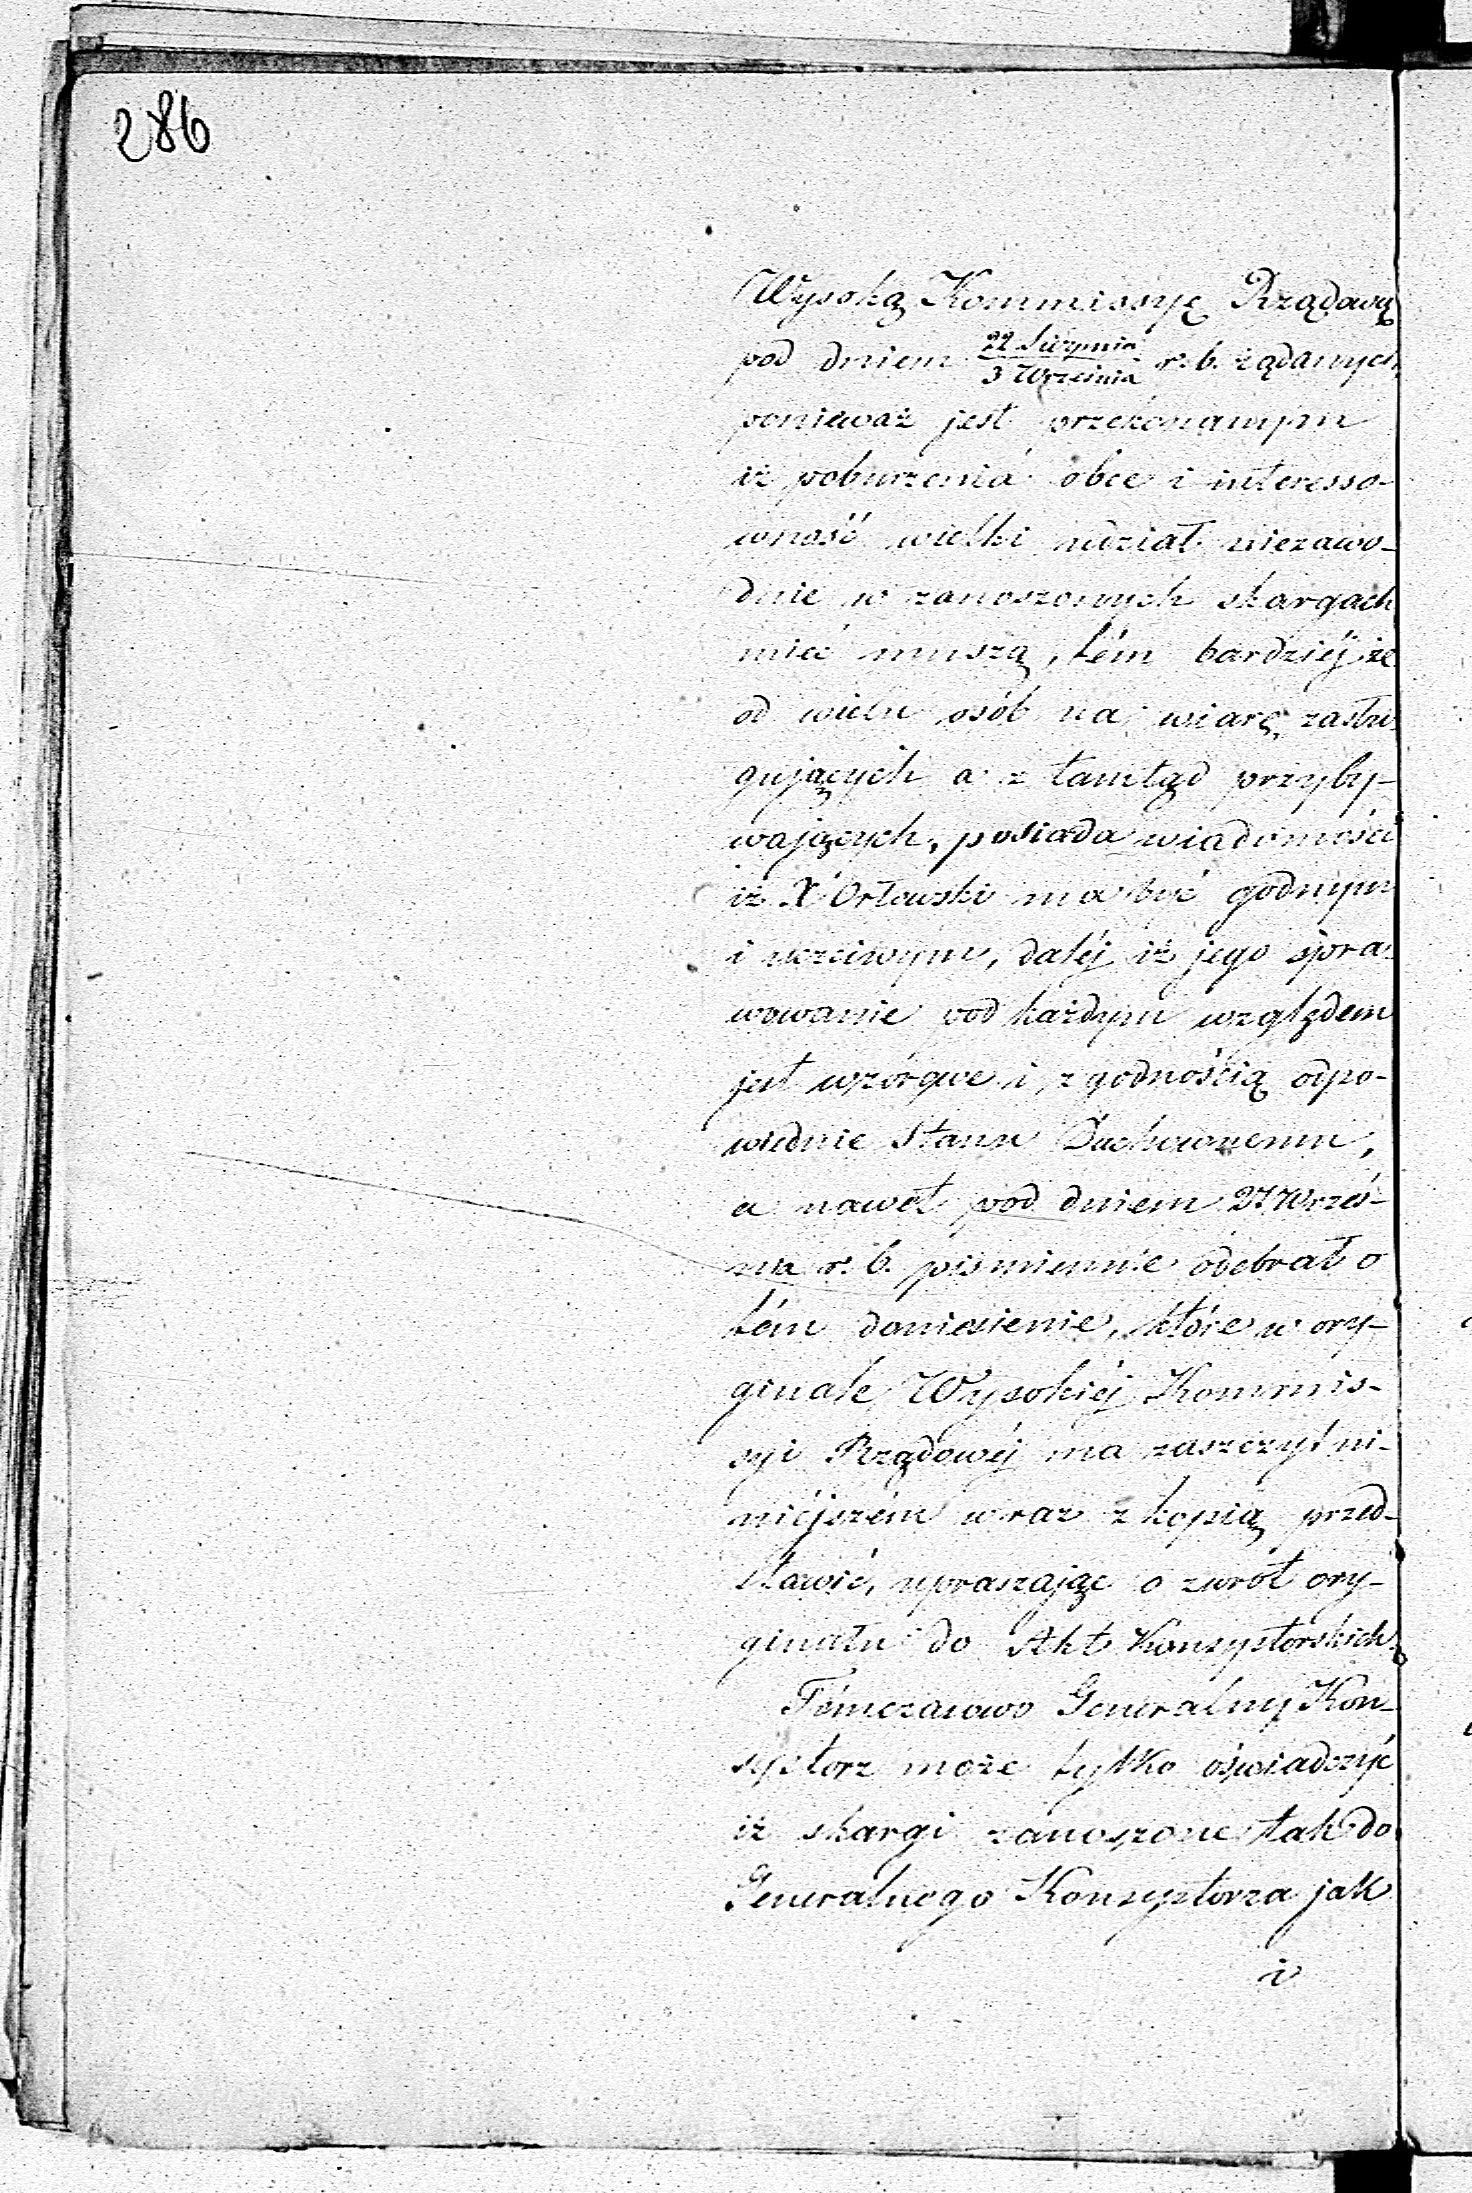 286
Wysoką Kommissyę Rządową
pod dniem 22 Sierpnia / 3 Września r. b. żądanych,
ponieważ jest przekonanym
iż poburzenia obce i interesso-
wność wielki udział niezawo-
dnie w zanoszonych skargach
mieć muszą, tém bardziéj że
od wielu osób na wiarę zasłu-
gujących a z tamtąd przyby-
wających, posiada wiadomości
iż X Orłowski ma być godnym
i uczciwym, daléj iż jego spra-
wowanie pod każdym względem
jest wzorowe i z godnością odpo-
wiednie Stanu Duchownemu,
a nawet pod dniem 27 Wrześ-
nia r. b. piśmiennie odebrał o
tém doniesienie, które w ory-
ginale Wysokiéj Kommis-
syi Rządowéj ma zaszczyt ni-
niéjszém wraz z kopią przed-
stawić, upraszając o zwrót ory-
ginału do Akt Konsystorskich.
Témczasowo Generalny Kon-
systorz może tylko oświadczyć
iż skargi zanoszone tak do
Generalnego Konsystorza jak
i